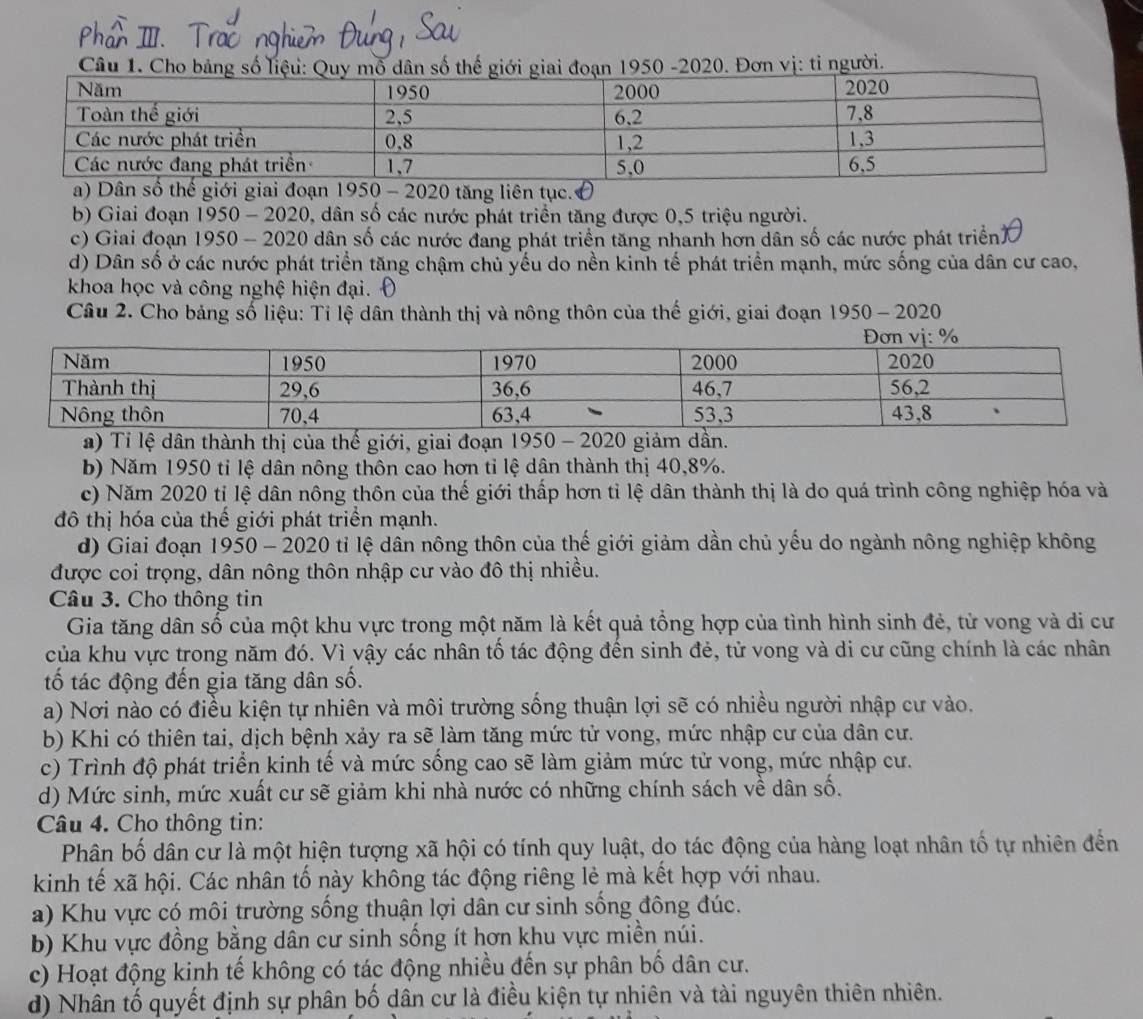 Phần III. Trắc nghiệm Đúng, Sai
Câu 1. Cho bảng số liệu: Quy mô dân số thế giới giai đoạn 1950 -2020. Đơn vị: tỉ người.
Năm 1950 2000 2020
Toàn thế giới 2,5 6,2 7,8
Các nước phát triển 0,8 1,2 1,3
Các nước đang phát triển 1,7 5,0 6,5
a) Dân số thế giới giai đoạn 1950 – 2020 tăng liên tục. Đ
b) Giai đoạn 1950 – 2020, dân số các nước phát triển tăng được 0,5 triệu người.
c) Giai đoạn 1950 – 2020 dân số các nước đang phát triển tăng nhanh hơn dân số các nước phát triển. Đ
d) Dân số ở các nước phát triển tăng chậm chủ yếu do nền kinh tế phát triển mạnh, mức sống của dân cư cao,
khoa học và công nghệ hiện đại. Đ
Câu 2. Cho bảng số liệu: Tỉ lệ dân thành thị và nông thôn của thế giới, giai đoạn 1950 – 2020
Đơn vị: %
Năm 1950 1970 2000 2020
Thành thị 29,6 36,6 46,7 56,2
Nông thôn 70,4 63,4 53,3 43,8
a) Tỉ lệ dân thành thị của thế giới, giai đoạn 1950 – 2020 giảm dần.
b) Năm 1950 tỉ lệ dân nông thôn cao hơn tỉ lệ dân thành thị 40,8%.
c) Năm 2020 tỉ lệ dân nông thôn của thế giới thấp hơn tỉ lệ dân thành thị là do quá trình công nghiệp hóa và
đô thị hóa của thế giới phát triển mạnh.
d) Giai đoạn 1950 – 2020 tỉ lệ dân nông thôn của thế giới giảm dần chủ yếu do ngành nông nghiệp không
được coi trọng, dân nông thôn nhập cư vào đô thị nhiều.
Câu 3. Cho thông tin
Gia tăng dân số của một khu vực trong một năm là kết quả tổng hợp của tình hình sinh đẻ, tử vong và di cư
của khu vực trong năm đó. Vì vậy các nhân tố tác động đến sinh đẻ, tử vong và di cư cũng chính là các nhân
tố tác động đến gia tăng dân số.
a) Nơi nào có điều kiện tự nhiên và môi trường sống thuận lợi sẽ có nhiều người nhập cư vào.
b) Khi có thiên tai, dịch bệnh xảy ra sẽ làm tăng mức tử vong, mức nhập cư của dân cư.
c) Trình độ phát triển kinh tế và mức sống cao sẽ làm giảm mức tử vong, mức nhập cư.
d) Mức sinh, mức xuất cư sẽ giảm khi nhà nước có những chính sách về dân số.
Câu 4. Cho thông tin:
Phân bố dân cư là một hiện tượng xã hội có tính quy luật, do tác động của hàng loạt nhân tố tự nhiên đến
kinh tế xã hội. Các nhân tố này không tác động riêng lẻ mà kết hợp với nhau.
a) Khu vực có môi trường sống thuận lợi dân cư sinh sống đông đúc.
b) Khu vực đồng bằng dân cư sinh sống ít hơn khu vực miền núi.
c) Hoạt động kinh tế không có tác động nhiều đến sự phân bố dân cư.
d) Nhân tố quyết định sự phân bố dân cư là điều kiện tự nhiên và tài nguyên thiên nhiên.